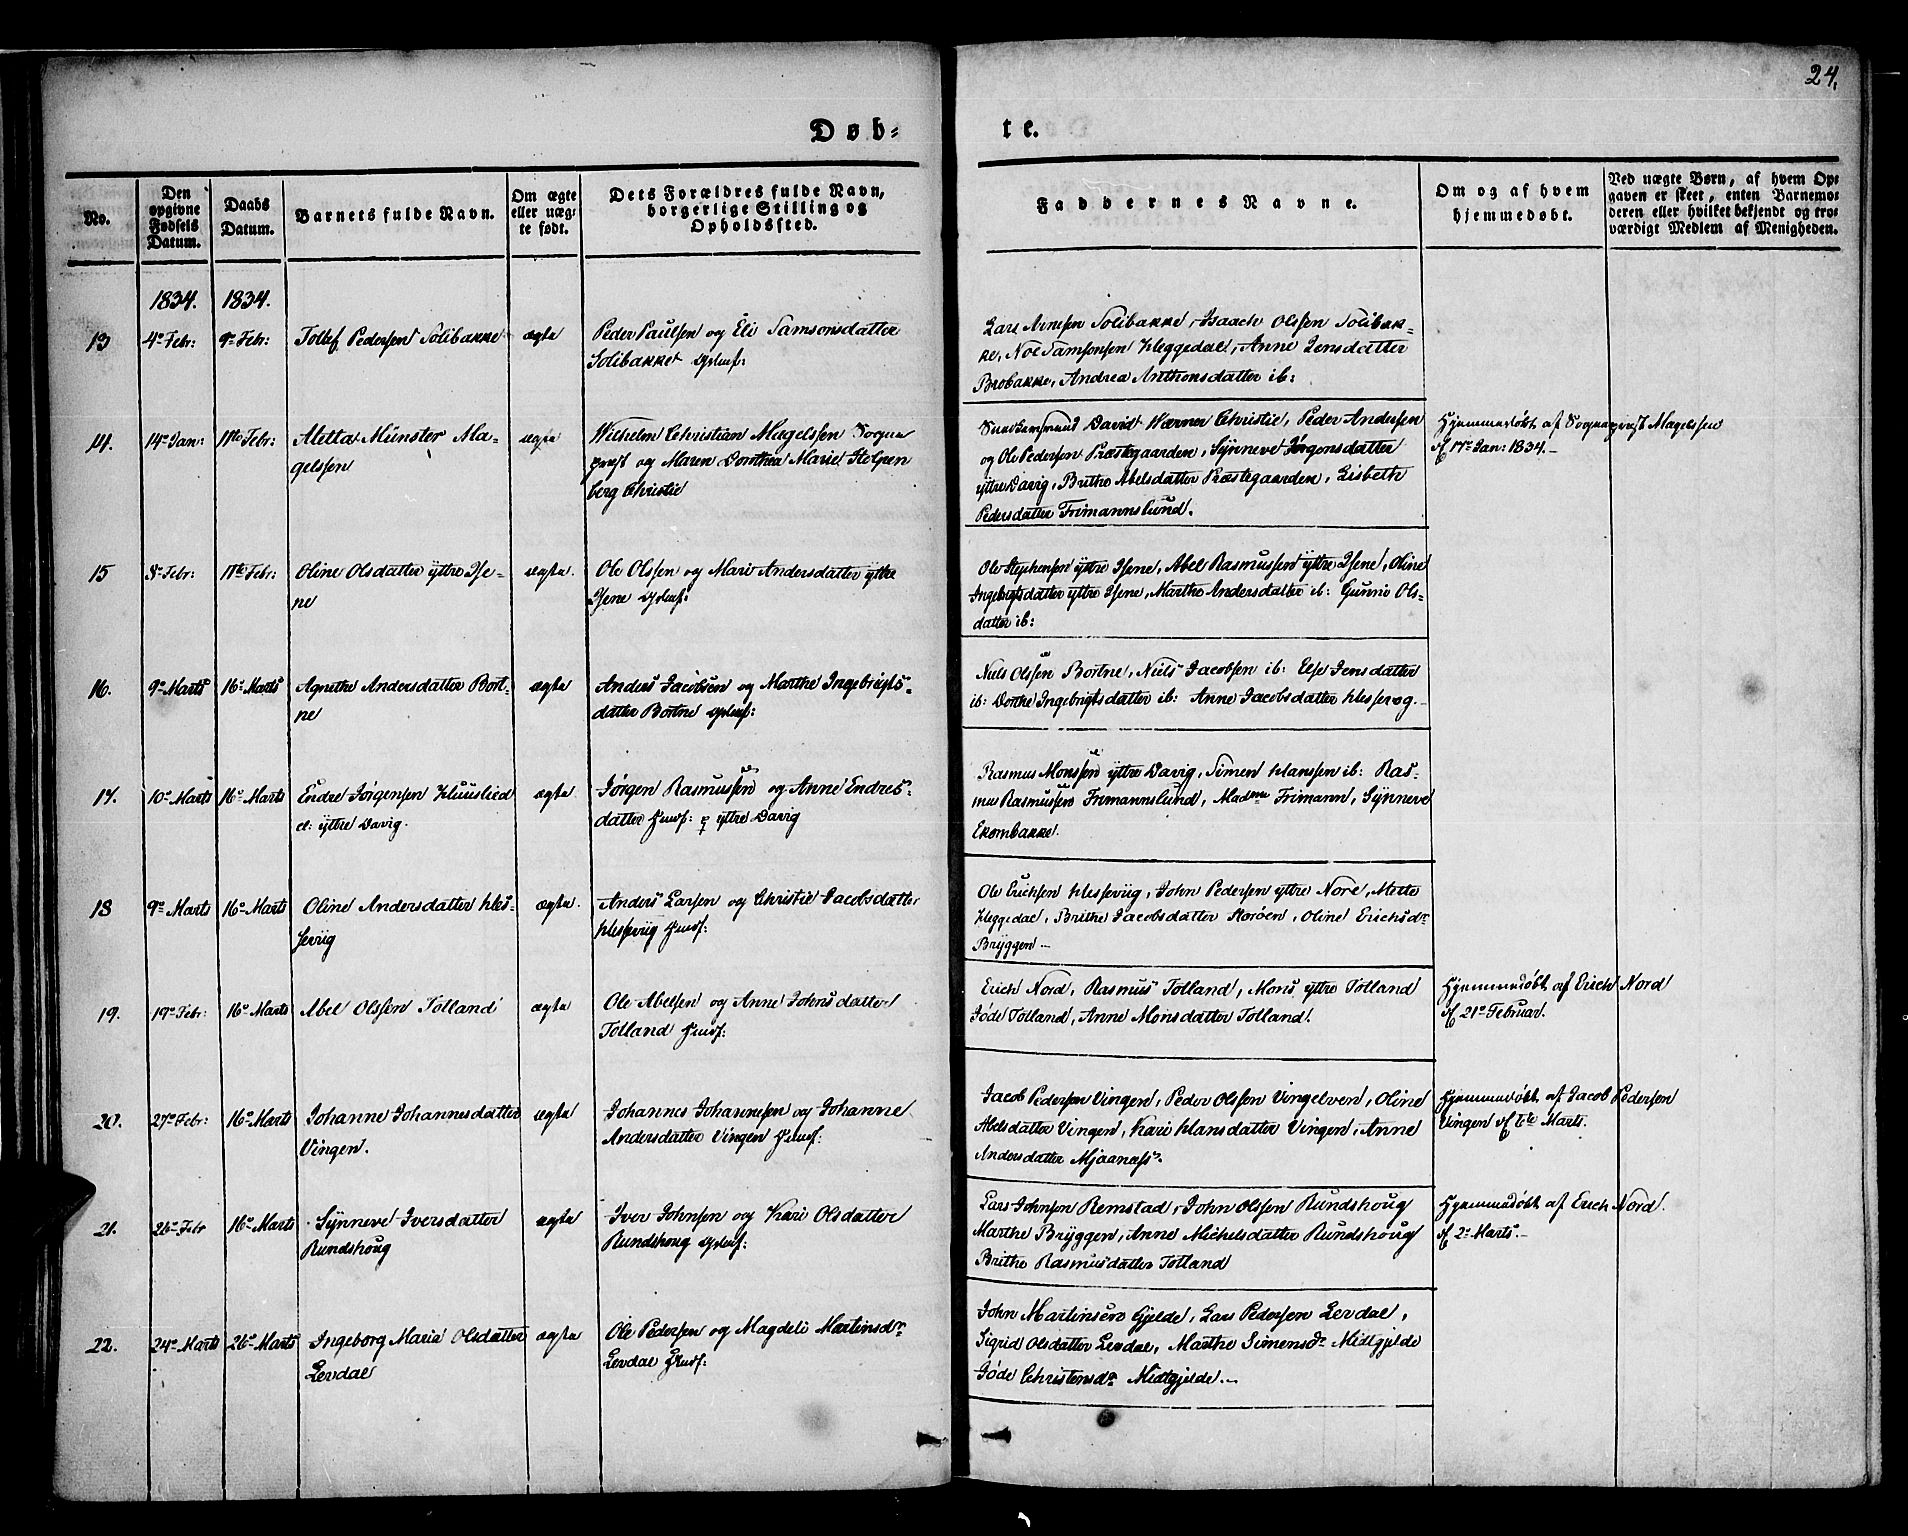 24.
Døb-
te.
No.
Den opgivne Fødsels Datum.
Daabs Datum.
Barnets fulde Navn.
Om ægte eller uægte født.
Dets Forældres fulde Navn, borgerlige Stilling og Opholdssted.
Faddernes Navne.
Om og af hvem hjemmedøbt.
Ved uægte Børn, af hvem Opgaven er skeet, enten Barnemoderen eller hvilket bekjendt og troværdigt Medlem af Menigheden.
1834. 1834.
13 4de Febr: 9de Febr: Tollef Pedersen Solibakke ægte
Peder Paulsen og Eli Samsonsdatter
Solibakke
Lars Arnesen Solibakke, Isaach Olssen Solibak-
ke, Noe Samsonsen Heggedal, Anne Jensdatter
Brobakke, Andrea Anthonsdatter ib:
14. 14de Jan: 11te Febr: Aletta Münster Ma-
gelssen
ægte
Wilhelm Christian Magelssen Sogne
præst og Maren Dorothea Marie Stelpen
berg Christie
David Werner Christie, Peder Andersen
og Ole Pedersen Præstegaarden, Synneve Jørgensdatter
yttre Davig, Brithe Abelsdatter Præstegaarden, Lisbeth
Pedersdatter Frimannslund.
Hjemmedøbt af Sognepræst Magelssen
d. 17de Jan: 1834.-
15 8de Febr: 11te Febr: Oline Olsdatter yttre Ise-
ne
ægte.
Ole Olssen og Mari Andersdatter yttre
Isene
Ole Stephensen yttre Isene, Abel Rasmussen yttre Isene, Oline
Ingebrigtsdatter yttre Isene, Marthe Andersdatter ib: Gunni Ols-
datter ib:
16. 9de Marts 16de Marts Agnethe Andersdatter Bort-
ne
ægte
Anders Jacobsen og Marthe Ingebrigts-
datter Bortne
Niels Olssen Bortne, Niels Jacobsen ib: Else Jensdatter
ib: Dorthe Ingebrigtsdatter ib: Anne Jacobsdatter Hessevog.-
17. 10de Marts 16de Marts Endre Jørgensen Huuslied
et: yttre Davig.
ægte
Jørgen Rasmussen og Anne Endres-
datter Huusf: yttre Davig
Rasmus Monssen yttre Davig, Simen Hanssen ib: Ras-
mus Rasmussen Frimannslund, Madme Frimann, Synneve
Ekornbakke.
18 9de Marts 16de Marts Oline Andersdatter Hes-
seviig
ægte.
Anders Larsen og Christie Jacobsdatter
Hesseviig Huusf:
Ole Erichsen Hesseviig, John Pedersen yttre Nore, Mette
Heggedal, Brithe Jacobsdatter, Oline Erichsdr
Bryggen.-
19. 19de Febr: 16de Marts Abel Olssen Totland ægte
Ole Abelsen og Anne Johnsdatter
Totland Huusf:
Erich Nord, Rasmus Totland, Mons yttre Totland
Jøde Totland, Anne Monsdatter Totland.
Hjemmedøbt af Erich Nord
d. 21de Februar.
20. 27de Febr: 16de Marts Johanne Johannesdatter
Vingen.
ægte
Johannes Johannesen og Johanne
Andersdatter Vingen Huusf:
Jacob Pedersen Vingen, Peder Olsson Vingelven, Oline
Abelsdatter Vingen, Kari Hansdatter Vingen, Anne
Andersdatter Mjaanæss.
Hjemmedøbt af Jacob Pedersen
Vingen d. 6te Marts.
21. 26de Febr 16de Marts Synneve Iversdatter
Rundshoug
ægte
Iver Johnsen og Kari Olsdatter
Rundshoug
Lars Johnsen Remstad, John Olssen Rundshoug
Marthe Bryggen, Anne Michelsdatter Rundshoug
Brithe Rasmusdatter Totland
Hjemmedøbt af Erich Nord.
d. 2de Marts.-
22. 24de Marts 26de Marts Ingeborg Maria Olsdatter
Levdal
ægte
Ole Pedersen og Magdeli Martinsdr
Levdal Huusf:
John Martinsen Gjelde, Lars Pedersen Levdal,
Sigrid Olsdatter Levdal, Marthe Simensdr Midtgjelde
Jøde Christensdr Midtgjelde.-